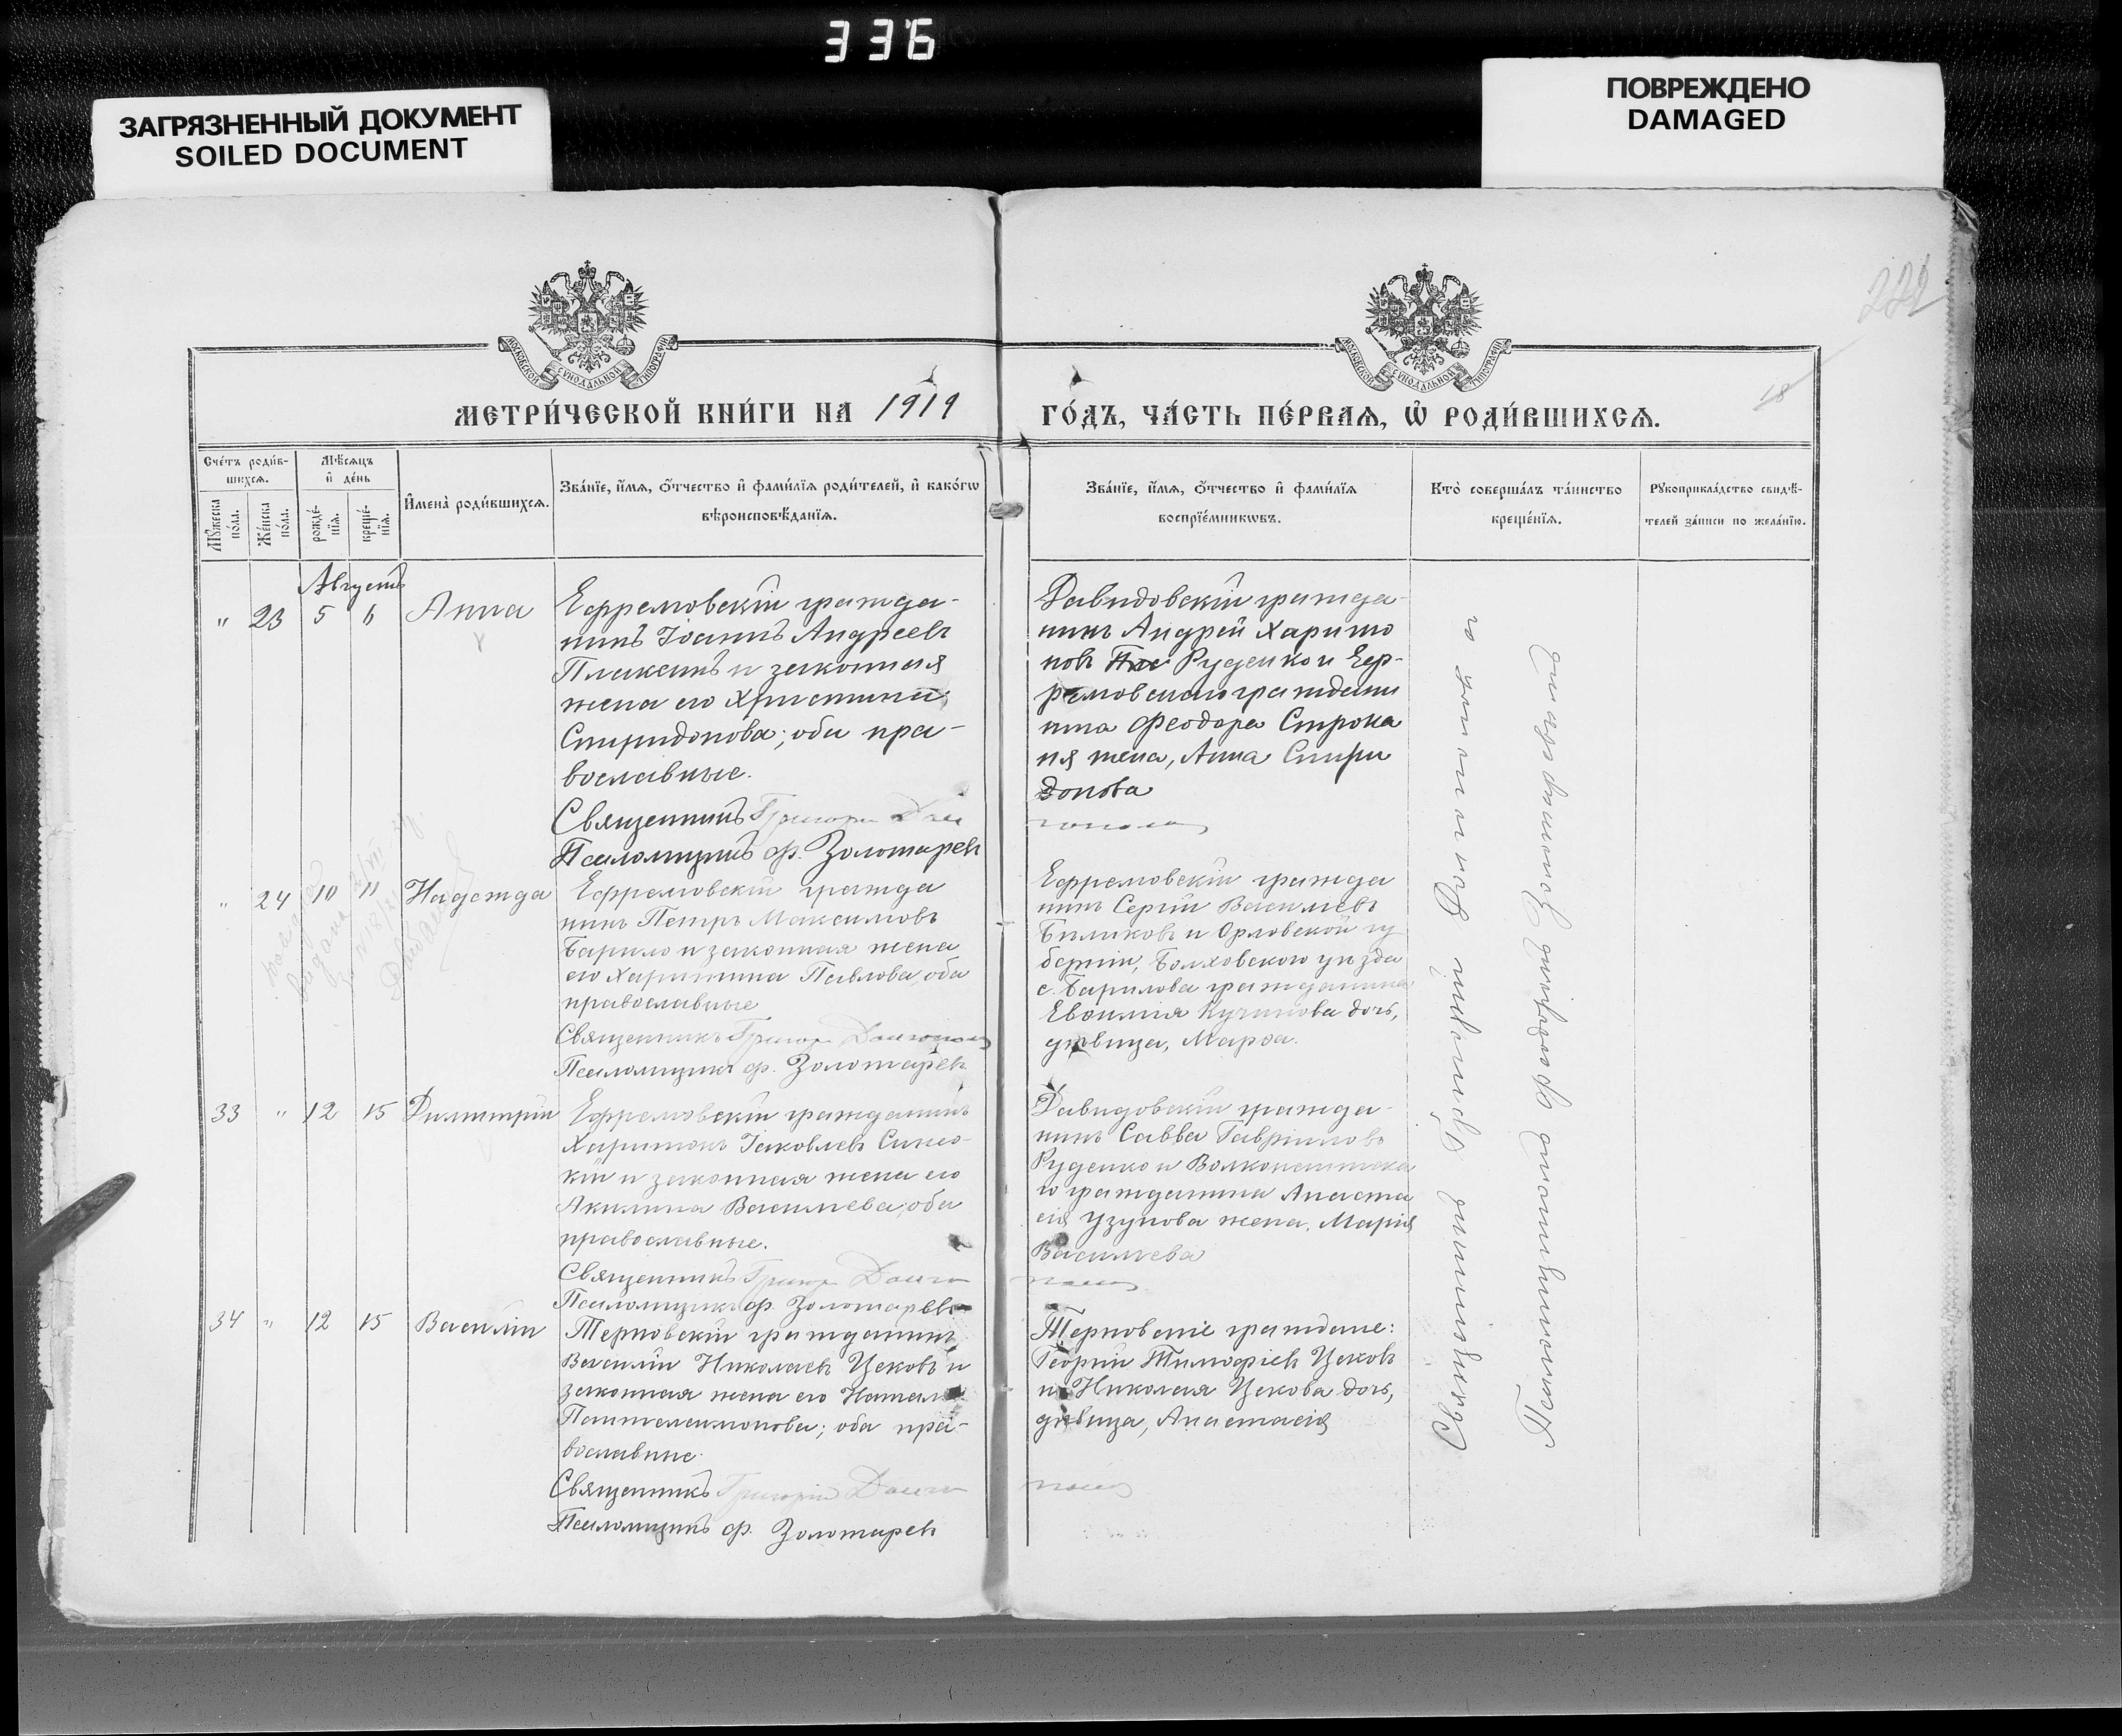 336
ЗАГРЯЗНЕННЫЙ ДОКУМЕНТ
SOILED DOCUMENT
ПОВРЕЖДЕНО
DAMAGED
МОСКОВСКОЙ СѴНОДАЛЬНОЙ ТИПОГРАФІИ
МОСКОВСКОЙ СѴНОДАЛЬНОЙ ТИПОГРАФІИ
18
МЕТРИ́ЧЕСКОЙ КНИ́ГИ НА 1919
ГО́ДЪ, ЧА́СТЬ ПЕ́РВАѦ, Ѡ҆ РОДИ́ВШИХСѦ.
Сче́тъ роди́в-
шихсѧ.
Мꙋ́жеска по́ла.
Же́нска по́ла.
Мѣ́сѧцъ
и҆ де́нь
рожде́-нїѧ.
креще́-нїѧ.
И҆мена̀ роди́вшихсѧ.
Зва́нїе, и҆́мѧ, ѻ҆́тчество и҆ фами́лїѧ роди́телей, и҆ како́гѡ
вѣроисповѣ́данїѧ.
Зва́нїе, и҆́мѧ, ѻ҆́тчество и҆ фами́лїѧ
воспрїе́мникѡвъ.
Кто̀ соверша́лъ та́инство
креще́нїѧ.
Рꙋкоприкла́дство свидѣ́-
телей за́писи по жела́нїю.
Августъ
" 23 5 6 Анна
Ефремовскій гражда-
нинъ Іоаннъ Андреевъ
и законная
жена его Христина
Спиридонова; оба пра-
вославные.
Священникъ Григорій Долго
Псаломщикъ Ѳ. Золотаревъ
Давидовскій гражда-
нинъ Андрей Харито
новъ Руденко и Еф-
ремовскаго граждани
на Ѳеодора Строка
ня жена, Анна Спири
донова
полов
" 24 10 11 Надежда
Ефремовскій гражда
нинъ Петръ Максимовъ
Барило и законная жена
его Харитина Павлова, оба
православные
Священникъ Григорій Долгополов
Псаломщикъ Ѳ. Золотаревъ
Ефремовскій гражда
нинъ Сергій Васильевъ
Биликовъ и Орловской гу
берніи, Болховского уѣзда
с. Барилова гражданина
Евѳимія Кучинова дочь,
дѣвица, Марѳа.
33 " 12 15 Димитрій
Ефремовскій гражданинъ
Харитонъ Іаковлевъ
кій и законная жена его
Акилина Васильева, оба
православные.
Священникъ Григорій Долго
Псаломщикъ Ѳ. Золотаревъ
Давидовскій гражда-
нинъ Савва Гавріиловъ
Руденко и
го гражданина Анаста
сія Узунова жена, Марія
Васильева
полов
34 " 12 15 Василій
Терновскій гражданинъ
Василій Николаевъ Цековъ и
законная жена его Наталія
Пантелеимонова; оба пра-
вославные
Священникъ Григорій Долго
Псаломщикъ Ѳ. Золотаревъ
Терновскіе граждане:
Георгій Тимоѳіевъ Цековъ
и Николая Цекова дочь,
дѣвица, Анастасія
полов
Священникъ Григорій Долгополовъ съ
Псаломщикомъ Ѳеодоромъ Золотаревымъ